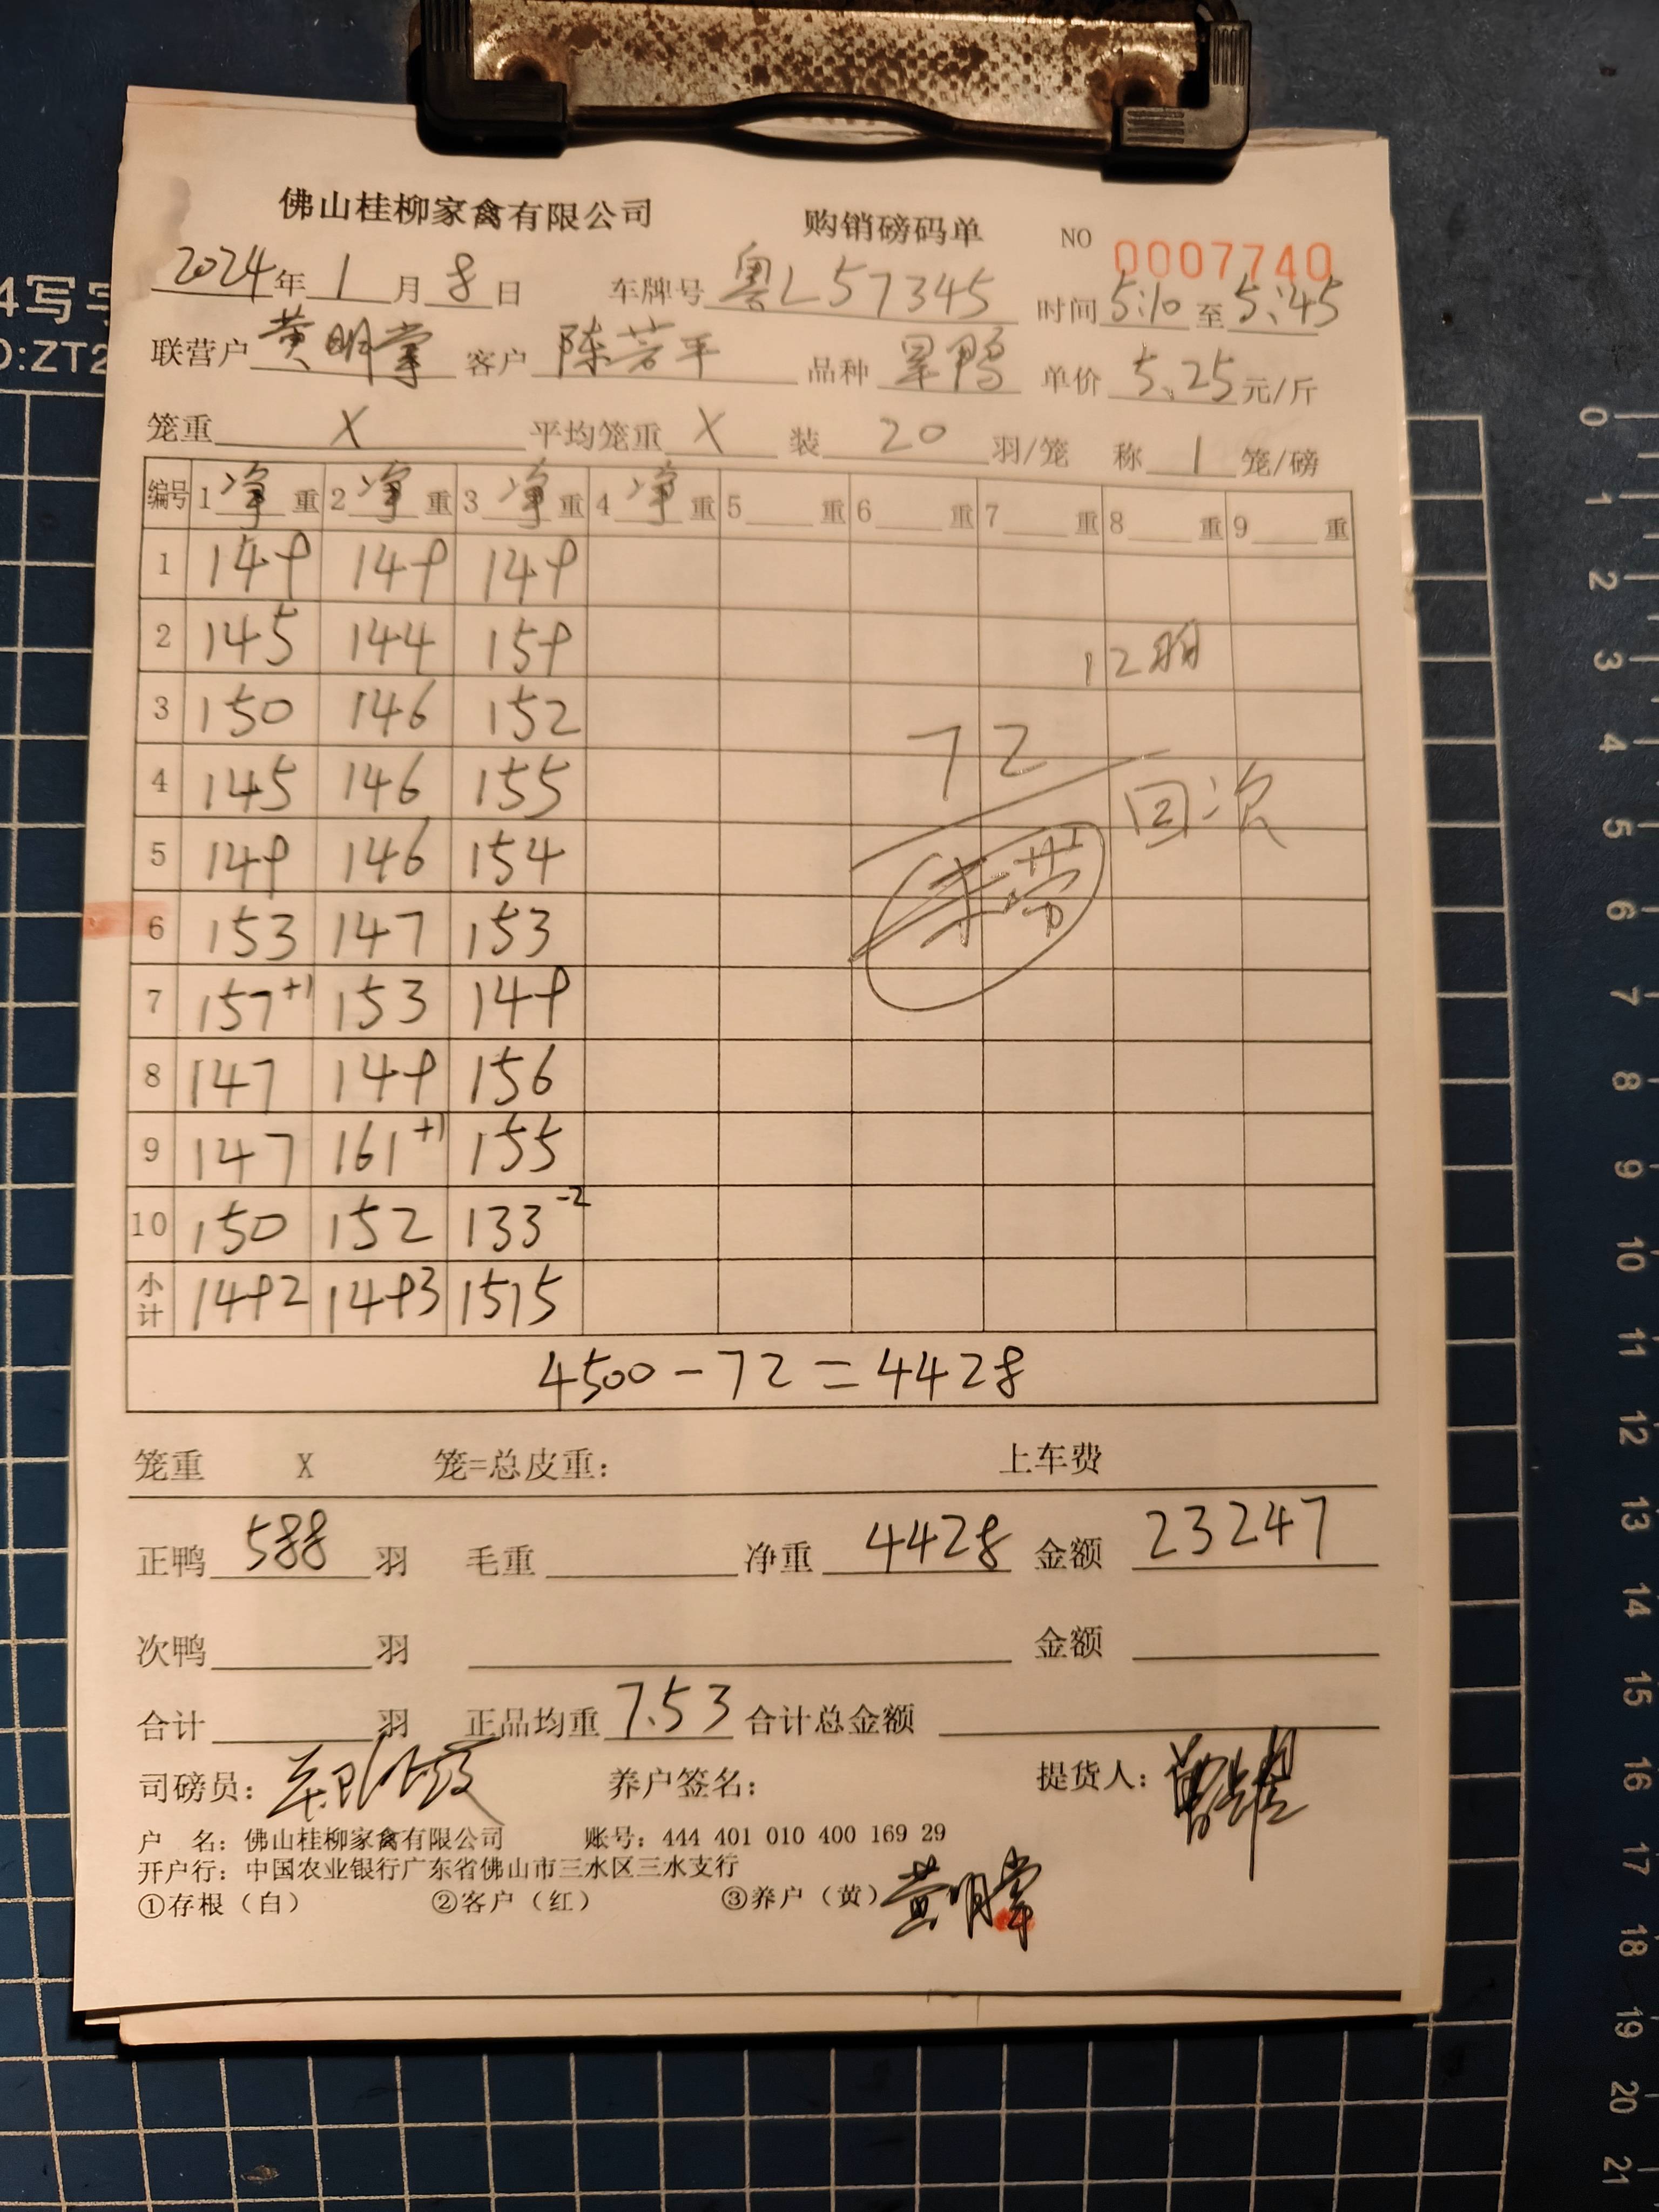 佛山桂柳家禽有限公司 购销磅码单 NO 0007740
2024年1月8日 车牌号 粤L57345 时间 5:10 至 5:45
联营户 黄明掌 客户 陈芳平 品种 旱鸭 单价 5.25 元/斤
笼重 X 平均笼重 X 装 20 羽/笼 称 1 笼/磅
编号 1 净 重 2 净 重 3 净 重 4 净 重 5 重 6 重 7 重 8 重 9 重
1 149 149 149
2 145 144 159 12羽
3 150 146 152 72
4 145 146 155 回次
5 149 146 154
6 153 147 153
7 157+1 153 149
8 147 149 156
9 147 161+1 155
10 150 152 133-2
小计 1492 1493 1515
4500-72=4428
笼重 X 笼=总皮重: 上车费
正鸭 588 羽 毛重 净重 4428 金额 23247
次鸭 羽 金额
合计 羽 正品均重 7.53 合计总金额
司磅员: 养户签名: 提货人:
户 名: 佛山桂柳家禽有限公司 账号: 444 401 010 400 169 29
开户行: 中国农业银行广东省佛山市三水区三水支行
①存根(白) ②客户(红) ③养户(黄) 黄明掌
0
1
2
3
4
5
6
7
8
9
10
11
12
13
14
15
16
17
18
19
20
21